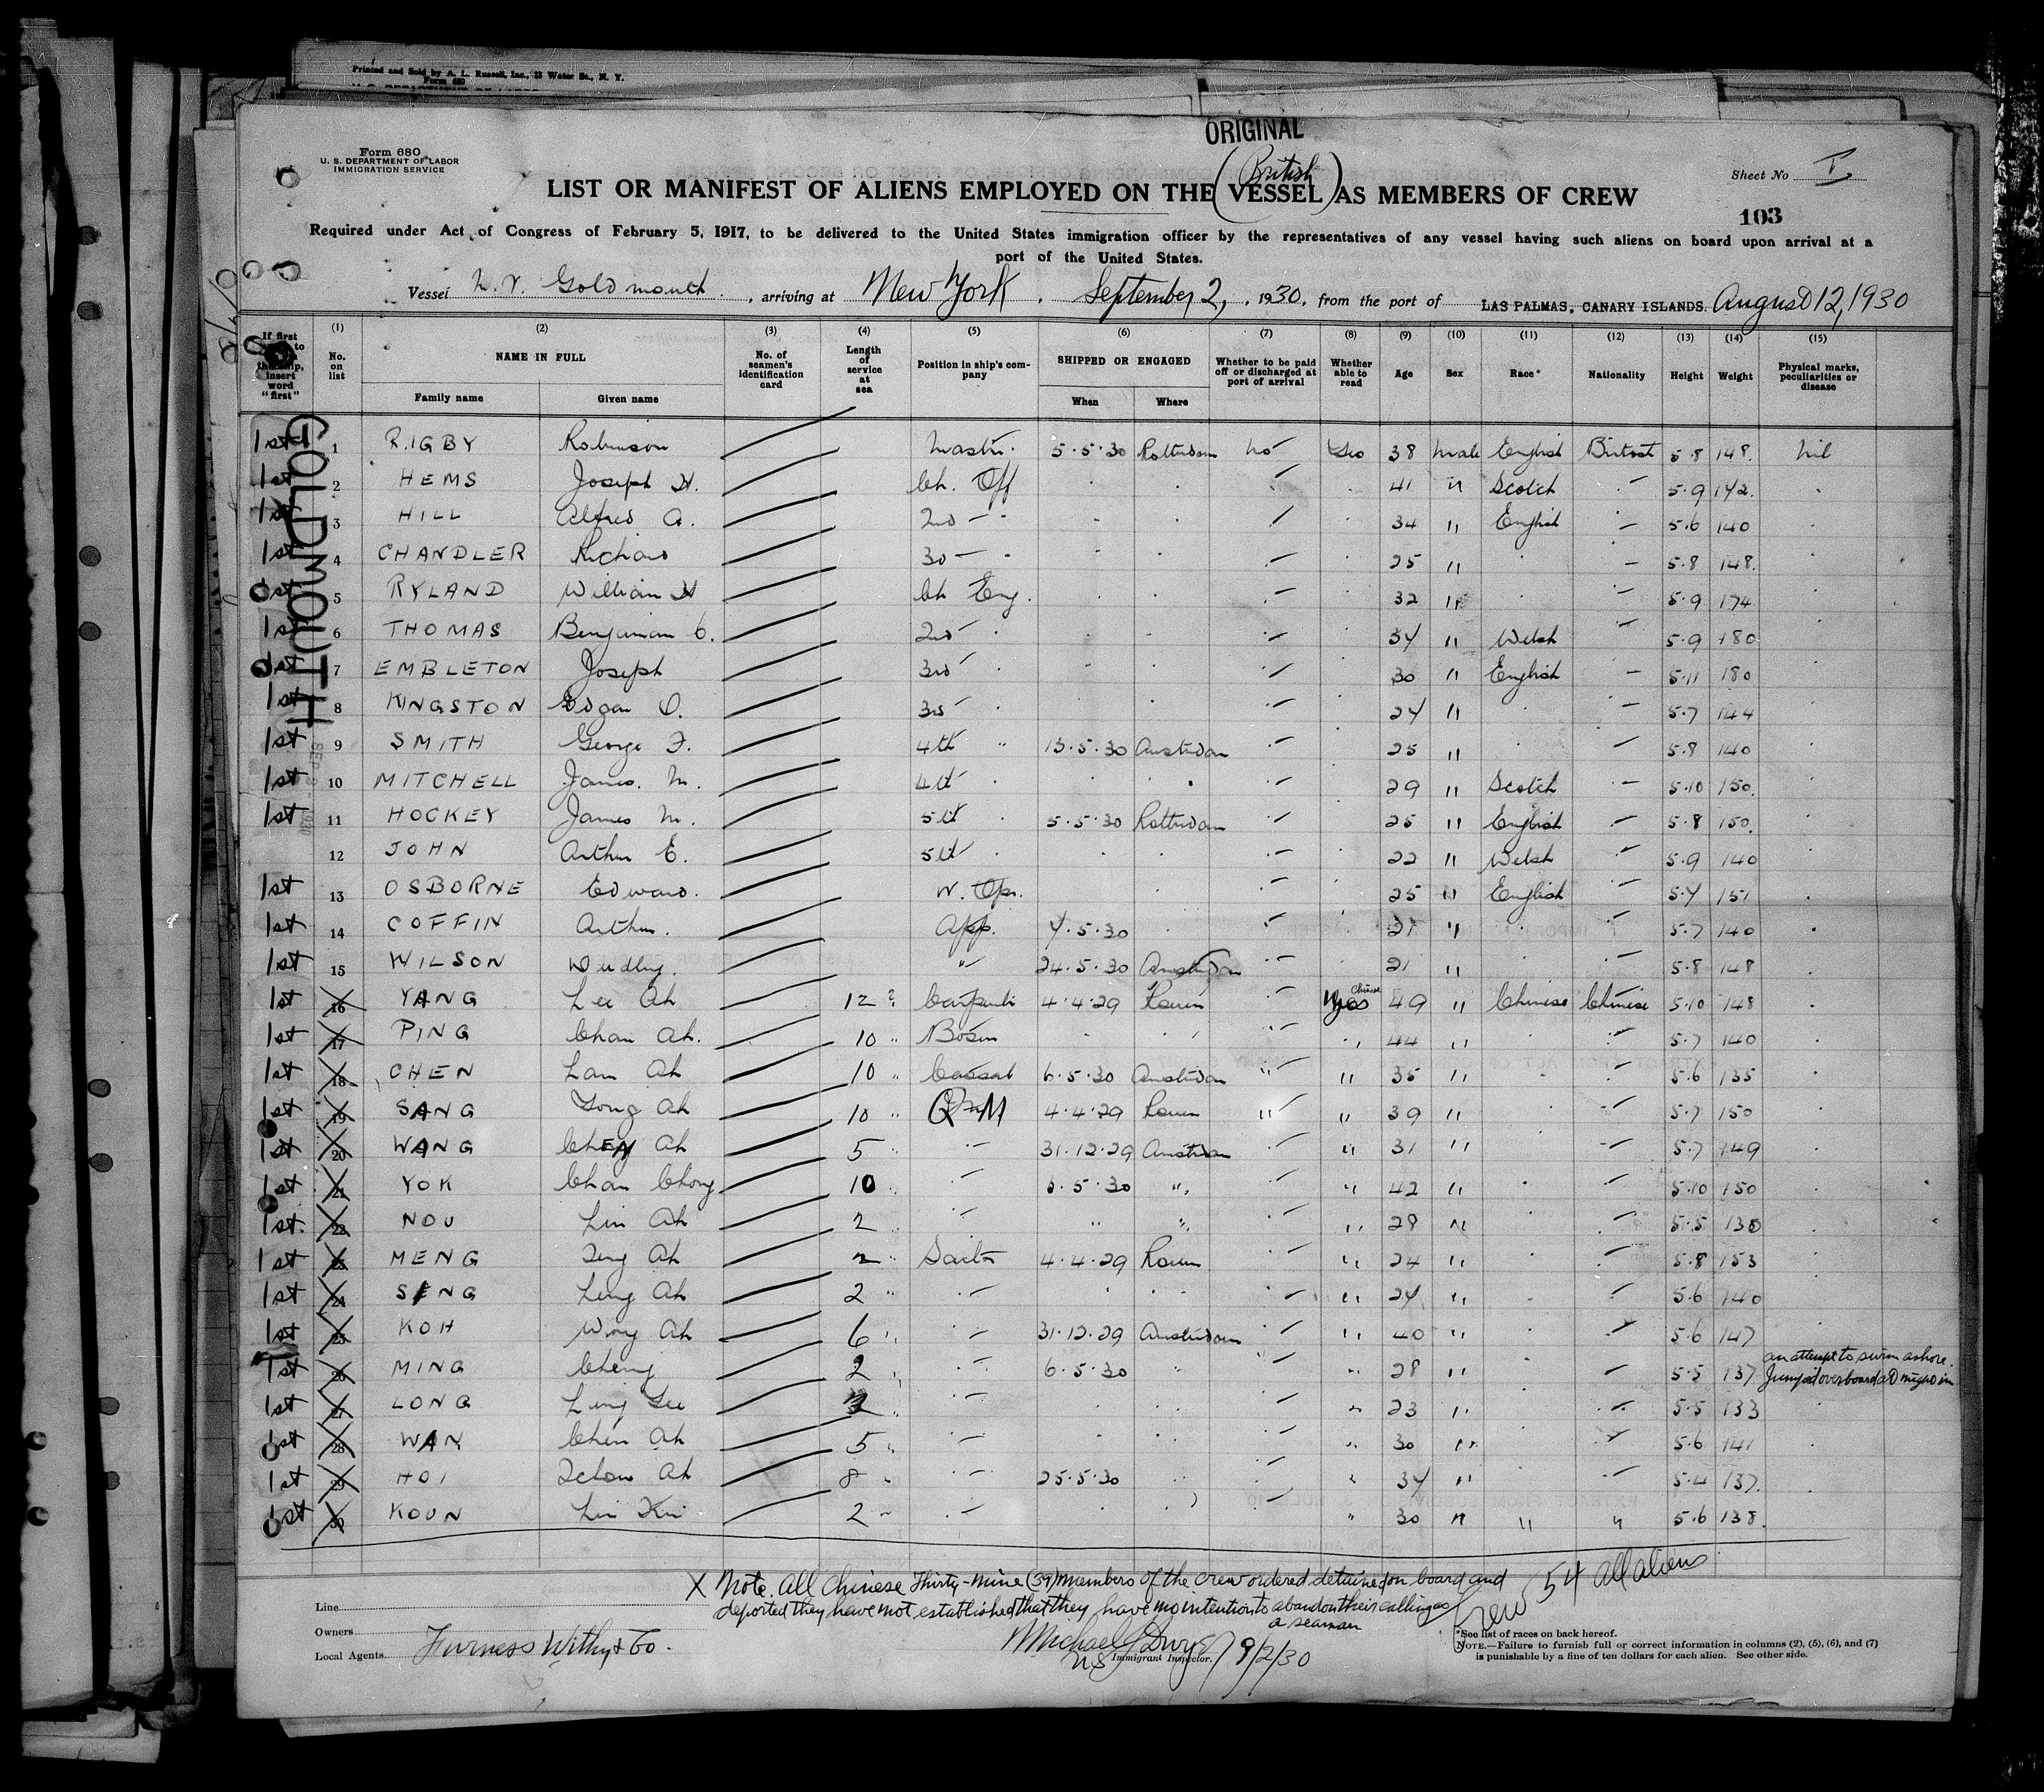 Printed and Sold by A. L. Russell, Inc., 12 Water St., N. Y.
Form 680
ORIGINAL
Form 680
U. S. DEPARTMENT OF LABOR
IMMIGRATION SERVICE
Sheet No I
(British)
LIST OR MANIFEST OF ALIENS EMPLOYED ON THE VESSEL AS MEMBERS OF CREW
103
Required under Act of Congress of February 5, 1917, to be delivered to the United States immigration officer by the representatives of any vessel having such aliens on board upon arrival at a
port of the United States.
Vessel Goldmouth, arriving at New York, September 2, 1930, from the port of LAS PALMAS, CANARY ISLANDS. August 12, 1930
(1) (2) (3) (4) (5) (6) (7) (8) (9) (10) (11) (12) (13) (14) (15)
If first insert word "first"
No. on list
NAME IN FULL
Family name
Given name
No. of seamen's identification card
Length of service at sea
Position in ship's company
SHIPPED OR ENGAGED
When
Where
Whether to be paid off or discharged at port of arrival
Whether able to read
Age
Sex
Race*
Nationality
Height
Weight
Physical marks, peculiarities or disease
GOLDMOUTH
SEP 2 - 1930
1st 1 RIGBY Robinson Master 5.5.30 Rotterdam no Yes 38 male English British 5.8 148 nil
1st 2 HEMS Joseph H. Ch. Off 41 " Scotch 5.9 142
1st 3 HILL Alfred A. 2nd 34 " English 5.6 140
1st 4 CHANDLER Richard 3d 25 " 5.8 148
1st 5 RYLAND William H Ch Eng. 32 " 5.9 174
1st 6 THOMAS Benjamin C. 2nd 34 " Welsh 5.9 180
1st 7 EMBLETON Joseph 3rd 30 " English 5.11 180
1st 8 KINGSTON Edgar O. 3d 24 " 5.7 144
1st 9 SMITH George F. 4th " 13.5.30 Amsterdam 25 " 5.8 140
1st 10 MITCHELL James. M. 4th 29 " Scotch 5.10 150
1st 11 HOCKEY James M. 5th 5.5.30 Rotterdam 25 " English 5.8 150
12 JOHN Arthur E. 5th 22 " Welsh 5.9 140
1st 13 OSBORNE Edward. W. Opr. 25 " English 151
1st 14 COFFIN Arthur. App. 21 " 5.7 140
1st 15 WILSON " 24.5.30 Amsterdam 21 " 5.8 148
1st 16 YANG Lee Ah 12 Carpenter 4.4.29 Rouen Chinese yes 49 " Chinese Chinese 5.10 148
1st 17 PING Chan Ah. 10 " Bosun 44 " 5.7 140
1st 18 CHEN Lam Ah 10 " 6.5.30 Amsterdam 35 " 5.6 135
1st 19 SANG Song Ah 10 " QrM 4.4.29 Rouen " " 39 " 5.7 150
1st 20 WANG ChEN Ah 5 31.12.29 Amsterdam " 31 " 5.7 149
1st 21 YOK Chan Chong 10 6.5.30 " " 42 " 5.10 150
1st. 22 NOU Lin Ah 2 " " " 28 " 5.5 130
1st 23 MENG Ah 2 Sailor 4.4.29 Rouen " 24 " 5.8 153
1st 24 SENG Ling Ah 2 " " 24 " 5.6 140
1st 25 KOH Wong Ah 6 31.12.29 Amsterdam " 40 " 5.6 147
1st 26 MING Cheng 2 6.5.30 " " 28 " 5.5 137 Jumped overboard at night in an attempt to swim ashore.
1st 27 LONG Lung 23 " 5.5 133
1st 28 WAN Chen Ah 5 " 30 " 5.6 141
1st 29 HOI Ah 8 25.5.30 " 34 " 5.4 137
1st 30 KOUN Lin Kui 2 " 30 " " " 5.6 138
X Note. All Chinese Thirty-nine (39) members of the crew ordered detained on board and
deported they have not established that they have no intention to abandon their calling as
a seaman
Crew 54 all aliens
Line
Owners
Local Agents Furness Withy & Co.
Michael Dwyer
US Immigrant Inspector. 9/2/30
*See list of races on back hereof.
NOTE.—Failure to furnish full or correct information in columns (2), (5), (6), and (7)
is punishable by a fine of ten dollars for each alien. See other side.